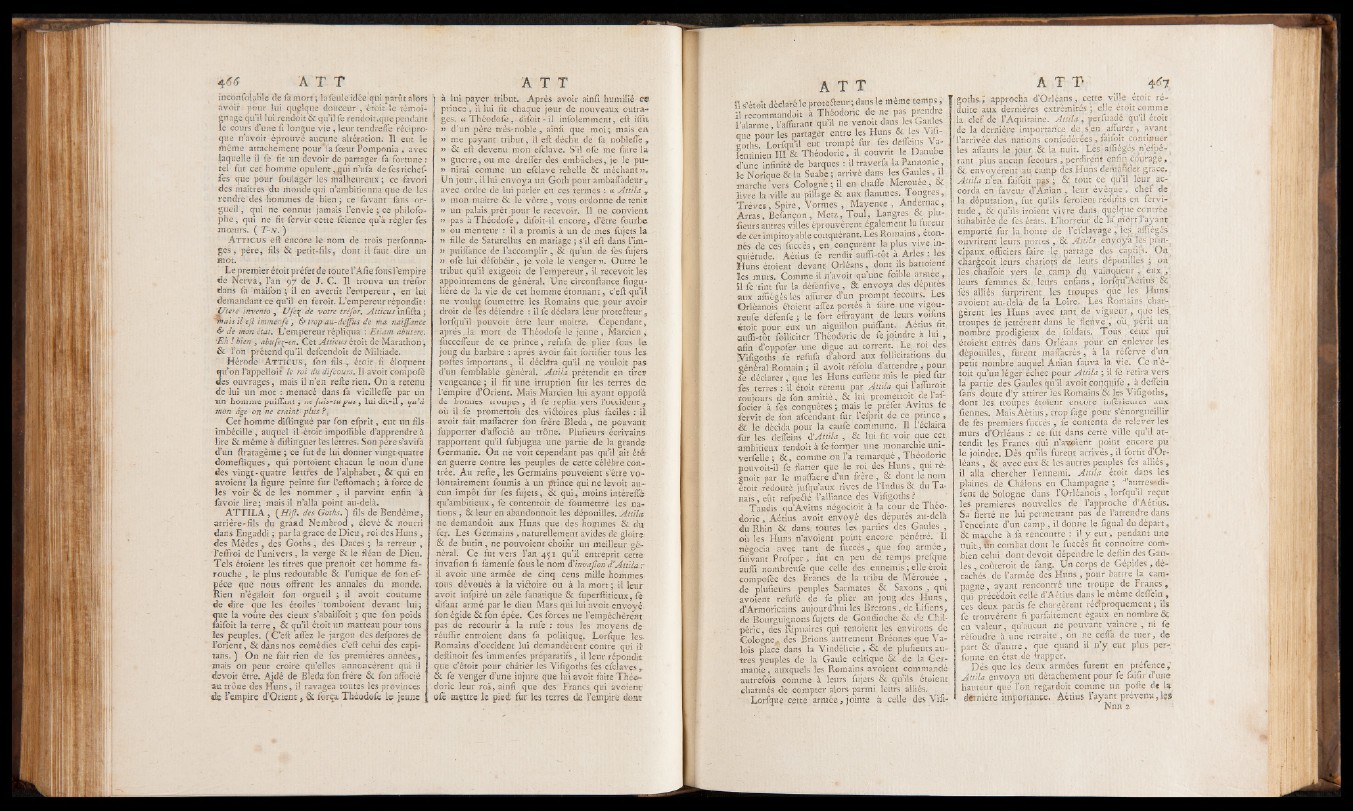 466 A T T
inconsolable de sa mort ; la seule idée qui parût alors
avoir pour lui quelque douceur, étoit le témoi-
gnage qu'il lui rendoit & qu'il se rendoit, que pendant
le cours d'une si longue vie, leur tendresse récipro-
que n'avoit éprouvé aucune altération. Il eut le
même attachement pour sa sœur Pomponia, avec
laquelle il se fit un devoir de partager sa fortune :
tel fut cet homme opulent, qui n'usa de ses richef-
ses que pour soulager les malheureux ; ce favori
des maîtres du monde qui n'ambitionna que de les
rendre des hommes de bien ; ce savant sans or-
gueil, qui ne connut jamais l'envie ; ce philoso-
phe, qui ne fit servir cette science qu'à régler ses
mœurs. ( T-N. )
ATTICUS est encore le nom de trois personna-
ges, père, fils & petit-fils, dont il faut dire un
mot.
Le premier étoit préfet de toute l'Asie sous l'empire
de Nerva, l'an 97 de J. C. Il trouva un trésor
dans sa maison ; il en avertit l'empereur, en lui
demandant ce qu'il en feroit. L'empereur répondit :
Utere invento, Usez de votre trésor. Atticus insista ;
mais il est immense, & trop au-dessus de ma naissance
& de mon état. L'empereur répliqua : Etiam abutere.
Eh ! bien, abusez-en. Cet Atticus étoit de Marathon,
& l'on prétend qu'il descendoit de Miltiade.
Hérode ATTICUS, son fils, étoit si éloquent
qu'on l'appelloit le roi du discours. Il avoit composé
des ouvrages, mais il n'en reste rien. On a retenu
de lui un mot : menacé dans sa vieillesse par un
un homme puissant, ne sais-tu pas, lui dit-il, qu'à
mon âge on ne craint plus ?
Cet homme distingué par son esprit, eut un fils
imbécille, auquel il étoit impossible d'apprendre à
lire & même à distinguer ses lettres. Son père s'avisa
d'un stratagême ; ce fut de lui donner vingt-quatre
domestiques, qui portoient chacun le nom d'une
des vingt-quatre lettres de l'alphabet, & qui en
avoient la figure peinte sur l'estomach ; à force de
les voir & de les nommer, il parvint enfin à
savoir lire ; mais il n'alla point au-delà.
ATTILA, ( Hist. des Goths. ) fils de Bendème,
arrière-fils du grand Nembrod, élevé & nourri
dans Engaddi ; par la grace de Dieu, roi des Huns,
des Mèdes, des Goths, des Daces ; la terreur,
l'effroi de l'univers, la verge & le fléau de Dieu.
Tels étoient les titres que prenoit cet homme fa-
rouche, le plus redoutable & l'unique de son es-
pèce que nous offrent les annales du monde.
Rien n'égaloit son orgueil ; il avoit coutume
de dire que les étoiles tomboient devant lui ;
que la voûte des cieux s'abaissoit ; que son poids
faisoit la terre, & qu'il étoit un marteau pour tous
les peuples. ( C'est assez le jargon des despotes de
l'orient, & dans nos comédies c'est celui des capi-
tans. ) On ne sait rien de ses premières années,
mais on peut croire qu'elles annoncèrent qui il
devoit être. Aidé de Bleda son frère & son associé
au trône des Huns, il ravagea toutes les provinces
de l'empire d'Orient, & força Théodose le jeune
A T T
à lui payer tribut. Après avoir ainsi humilié ce
prince, il lui fit chaque jour de nouveaux outra-
ges. « Théodose, disoit-il insolemment, est issu
» d'un père très-noble, ainsi que moi ; mais en
» me payant tribut, il est déchu de sa noblesse,
» & est devenu mon esclave. S'il ose me faire la
» guerre, ou me dresser des embûches, je le pu-
» nirai comme un esclave rebelle & méchant ».
Un jour, il lui envoya un Goth pour ambassadeur,
avec ordre de lui parler en ces termes : « Attila
» mon maître & le vôtre, vous ordonne de tenir
» un palais prêt pour le recevoir. Il ne convient
» pas à Théodose, disoit-il encore, d'être fourbe
» ou menteur : il a promis à un de mes sujets la
» fille de Saturellus en mariage ; s'il est dans l'im-
» puissance de l'accomplir, & qu'un de ses sujets
» ose lui désobéir, je vole le venger ». Outre le
tribut qu'il exigeoit de l'empereur, il recevoit les
appointemens de général. Une circonstance singu-
lière de la vie de cet homme étonnant, c'est qu'il
ne voulut soumettre les Romains que pour avoir
droit de les défendre : il se déclara leur protecteur,
lorsqu'il pouvoit être leur maître. Cependant,
après la mort de Théodose le jeune, Marcien,
successeur de ce prince, refusa de plier sous le
joug du barbare : après avoir fait fortifier tous les
postes importans, il déclara qu'il ne vouloit pas
d'un semblable général. Attila prétendit en tirer
vengeance ; il fit une irruption sur les terres de
l'empire d'Orient. Mais Marcien lui ayant opposé
de bonnes troupes, il se replia vers l'occident,
où il se promettoit des victoires plus faciles : il
avoit fait massacrer son frère Bleda, ne pouvant
supporter d'associé au trône. Plusieurs écrivains
rapportent qu'il subjugua une partie de la grande
Germanie. On ne voit cependant pas qu'il ait été
en guerre contre les peuples de cette célèbre con-
trée. Au reste, les Germains pouvoient s'être vo-
lontairement soumis à un prince qui ne levoit au-
cun impôt sur ses sujets, & qui, moins intéressé
qu'ambitieux, se contentoit de soumettre les na-
tions, & leur en abandonnoit les dépouilles. Attila
ne demandoit aux Huns que des hommes & du
fer. Les Germains, naturellement avides de gloire
& de butin, ne pouvoient choisir un meilleur gé-
néral. Ce fut vers l'an 451 qu'il entreprit cette
invasion si fameuse sous le nom d'invasion d'Attila :
il avoit une armée de cinq cens mille hommes
tous dévoués à la victoire ou à la mort ; il leur
avoit inspiré un zèle fanatique & superstitieux, se
disant armé par le dieu Mars qui lui avoit envoyé
son égide & son épée. Ces forces ne l'empêchèrent
pas de recourir à la ruse : tous les moyens de
réussir entroient dans sa politique. Lorsque les
Romains d'occident lui demandèrent contre qui il
destinoit ses immenses préparatifs, il leur répondit
que c'étoit pour châtier les Visigoths ses esclaves,
& se venger d'une injure que lui avoit faite Théo-
doric leur roi, ainsi que des Francs qui avoient
osé mettre le pied sur les terres de l'empire dont
A T T
il s'étoit déclaré le protecteur ; dans le même temps,
il recommandoit à Théodoric de ne pas prendre
l'alarme, l'assurant qu'il ne venoit dans les Gaules
que pour les partager entre les Huns & les Visi-
goths. Lorsqu'il eut trompé sur ses desseins Va-
lentinien III & Théodoric, il couvrit le Danube
d'une infinité de barques : il traversa la Pannonie,
le Norique & la Suabe ; arrivé dans les Gaules, il
marche vers Cologne ; il en chasse Merouée, &
livre la ville au pillage & aux flammes. Tongres,
Trèves, Spire, Vormes, Mayence, Andernac,
Arras, Besançon, Metz, Toul, Langres & plu-
sieurs autres villes éprouvèrent également la fureur
de cet impitoyable conquérant. Les Romains, éton-
nés de ces succès, en conçurent la plus vive in-
quiétude. Aétius se rendit aussi-tôt à Arles : les
Huns étoient devant Orléans, dont ils battoient
les murs. Comme il n'avoit qu'une foible armée,
il se tint sur la défensive, & envoya des députés
aux assiégés les assurer d'un prompt secours. Les
Orléanois étoient assez portés à faire une vigou-
reuse défense ; le sort effrayant de leurs voisins
étoit pour eux un aiguillon puissant. Aétius fit
aussi-tôt solliciter Théodoric de se joindre à lui,
afin d'opposer une digue au torrent. Le roi des
Visigoths se refusa d'abord aux sollicitations du
général Romain ; il avoit résolu d'attendre, pour
se déclarer, que les Huns eussent mis le pied sur
ses terres : il étoit retenu par Attila qui l'assuroit
toujours de son amitié, & lui promettoit de l'as-
socier à ses conquêtes ; mais le préfet Avitus se
servit de son ascendant sur l'esprit de ce prince,
& le décida pour la cause commune. Il l'éclaira
sur les desseins d'Attila, & lui fit voir que cet
ambitieux tendoit à se former une monarchie uni-
verselle ; &, comme on l'a remarqué, Théodoric
pouvoit-il se flatter que le roi des Huns, qui ré-
gnoit par le massacre d'un frère, & dont le nom
étoit redouté jusqu'aux rives de l'Indus & du Ta-
nais, eût respecté l'alliance des Visigoths ?
Tandis qu'Avitus négocioit à la cour de Théo-
doric, Aétius avoit envoyé des députés au-delà
du Rhin & dans toutes les parties des Gaules,
où les Huns n'avoient point encore pénétré. Il
négocia avec tant de succès, que son armée,
suivant Prosper, fut en peu de temps presque
aussi nombreuse que celle des ennemis ; elle étoit
composée des Francs de la tribu de Mérouée,
de plusieurs peuples Sarmates & Saxons, qui
avoient refusé de se plier au joug des Huns,
d'Armoricains aujourd'hui les Bretons, de Lisiens,
de Bourguignons sujets de Gondioche & de Chil-
péric, des Ripuaires qui tenoient les environs de
Cologne, des Brions autrement Bréones que Va-
lois place dans la Vindélicie, & de plusieurs au-
tres peuples de la Gaule celtique & de la Ger-
manie, auxquels les Romains avoient commandé
autrefois comme à leurs sujets & qu'ils étoient
charmés de compter alors parmi leurs alliés.
Lorsque cette armée, jointe à celle des Visi-
A T T 467
goths, approcha d'Orléans, cette ville étoit ré-
duite aux dernières extrémités ; elle étoit comme
la clef de l'Aquitaine. Attila, persuadé qu'il étoit
de la dernière importance de s'en assurer, avant
l'arrivée des nations confédérées, faisoit continuer
les assauts le jour & la nuit. Les assiégés n'espé-
rant plus aucun secours, perdirent enfin courage,
& envoyèrent au camp des Huns demander grace.
Attila n'en faisoit pas ; & tout ce qu'il leur ac-
corda en faveur d'Anian, leur évêque, chef de
la députation, fut qu'ils seroient réduits en servi-
tude, & qu'ils iroient vivre dans quelque contrée
inhabitée de ses états. L'horreur de la mort l'ayant
emporté sur la honte de l'esclavage, les assiégés
ouvrirent leurs portes, & Attila envoya ses prin-
cipaux officiers faire le partage des captifs. On
chargeoit leurs chariots de leurs dépouilles ; on
les chassoit vers le camp du vainqueur, eux,
leurs femmes & leurs enfans, lorsqu'Aétius &
ses alliés surprirent les troupes que les Huns
avoient au-delà de la Loire. Les Romains char-
gèrent les Huns avec tant de vigueur, que les
troupes se jettèrent dans le fleuve, où périt un
nombre prodigieux de soldats. Tous ceux qui
étoient entrés dans Orléans pour en enlever les
dépouilles, furent massacrés, à la réserve d'un
petit nombre auquel Anian sauva la vie. Ce n'é-
toit qu'un léger échec pour Attila ; il se retira vers
la partie des Gaules qu'il avoit conquise, à dessein
sans doute d'y attirer les Romains & les Visigoths,
dont les troupes étoient encore inférieures aux
siennes. Mais Aétius, trop sage pour s'énorgueillir
de ses premiers succès, se contenta de relever les
murs d'Orléans : ce fut dans cette ville qu'il at-
tendit les Francs qui n'avoient point encore pu
le joindre. Dès qu'ils furent arrivés, il sortit d'Or-
léans, & avec eux & les autres peuples ses alliés,
il alla chercher l'ennemi. Attila étoit dans les
plaines de Châlons en Champagne ; d'autres di-
sent de Sologne dans l'Orléanois, lorsqu'il reçut
les premières nouvelles de l'approche d'Aétius.
Sa fierté ne lui permettant pas de l'attendre dans
l'enceinte d'un camp, il donne le signal du départ,
& marche à sa rencontre : il y eut, pendant une
nuit, un combat dont le succès fit connoître com-
bien celui dont devoit dépendre le destin des Gau-
les, coûteroit de sang. Un corps de Gépides, dé-
tachés de l'armée des Huns, pour battre la cam-
pagne, ayant rencontré une troupe de Francs,
qui précédoit celle d'Aétius dans le même dessein,
ces deux partis se chargèrent réciproquement ; ils
se trouvèrent si parfaitement égaux en nombre &
en valeur, qu'aucun ne pouvant vaincre, ni se
résoudre à une retraite, on ne cessa de tuer, de
part & d'autre, que quand il n'y eut plus per-
sonne en état de frapper.
Dès que les deux armées furent en présence,
Attila envoya un détachement pour se saisir d'une
hauteur que l'on regardoit comme un poste de la
dernière importance. Aétius l'ayant prévenu, les
Nnn 2